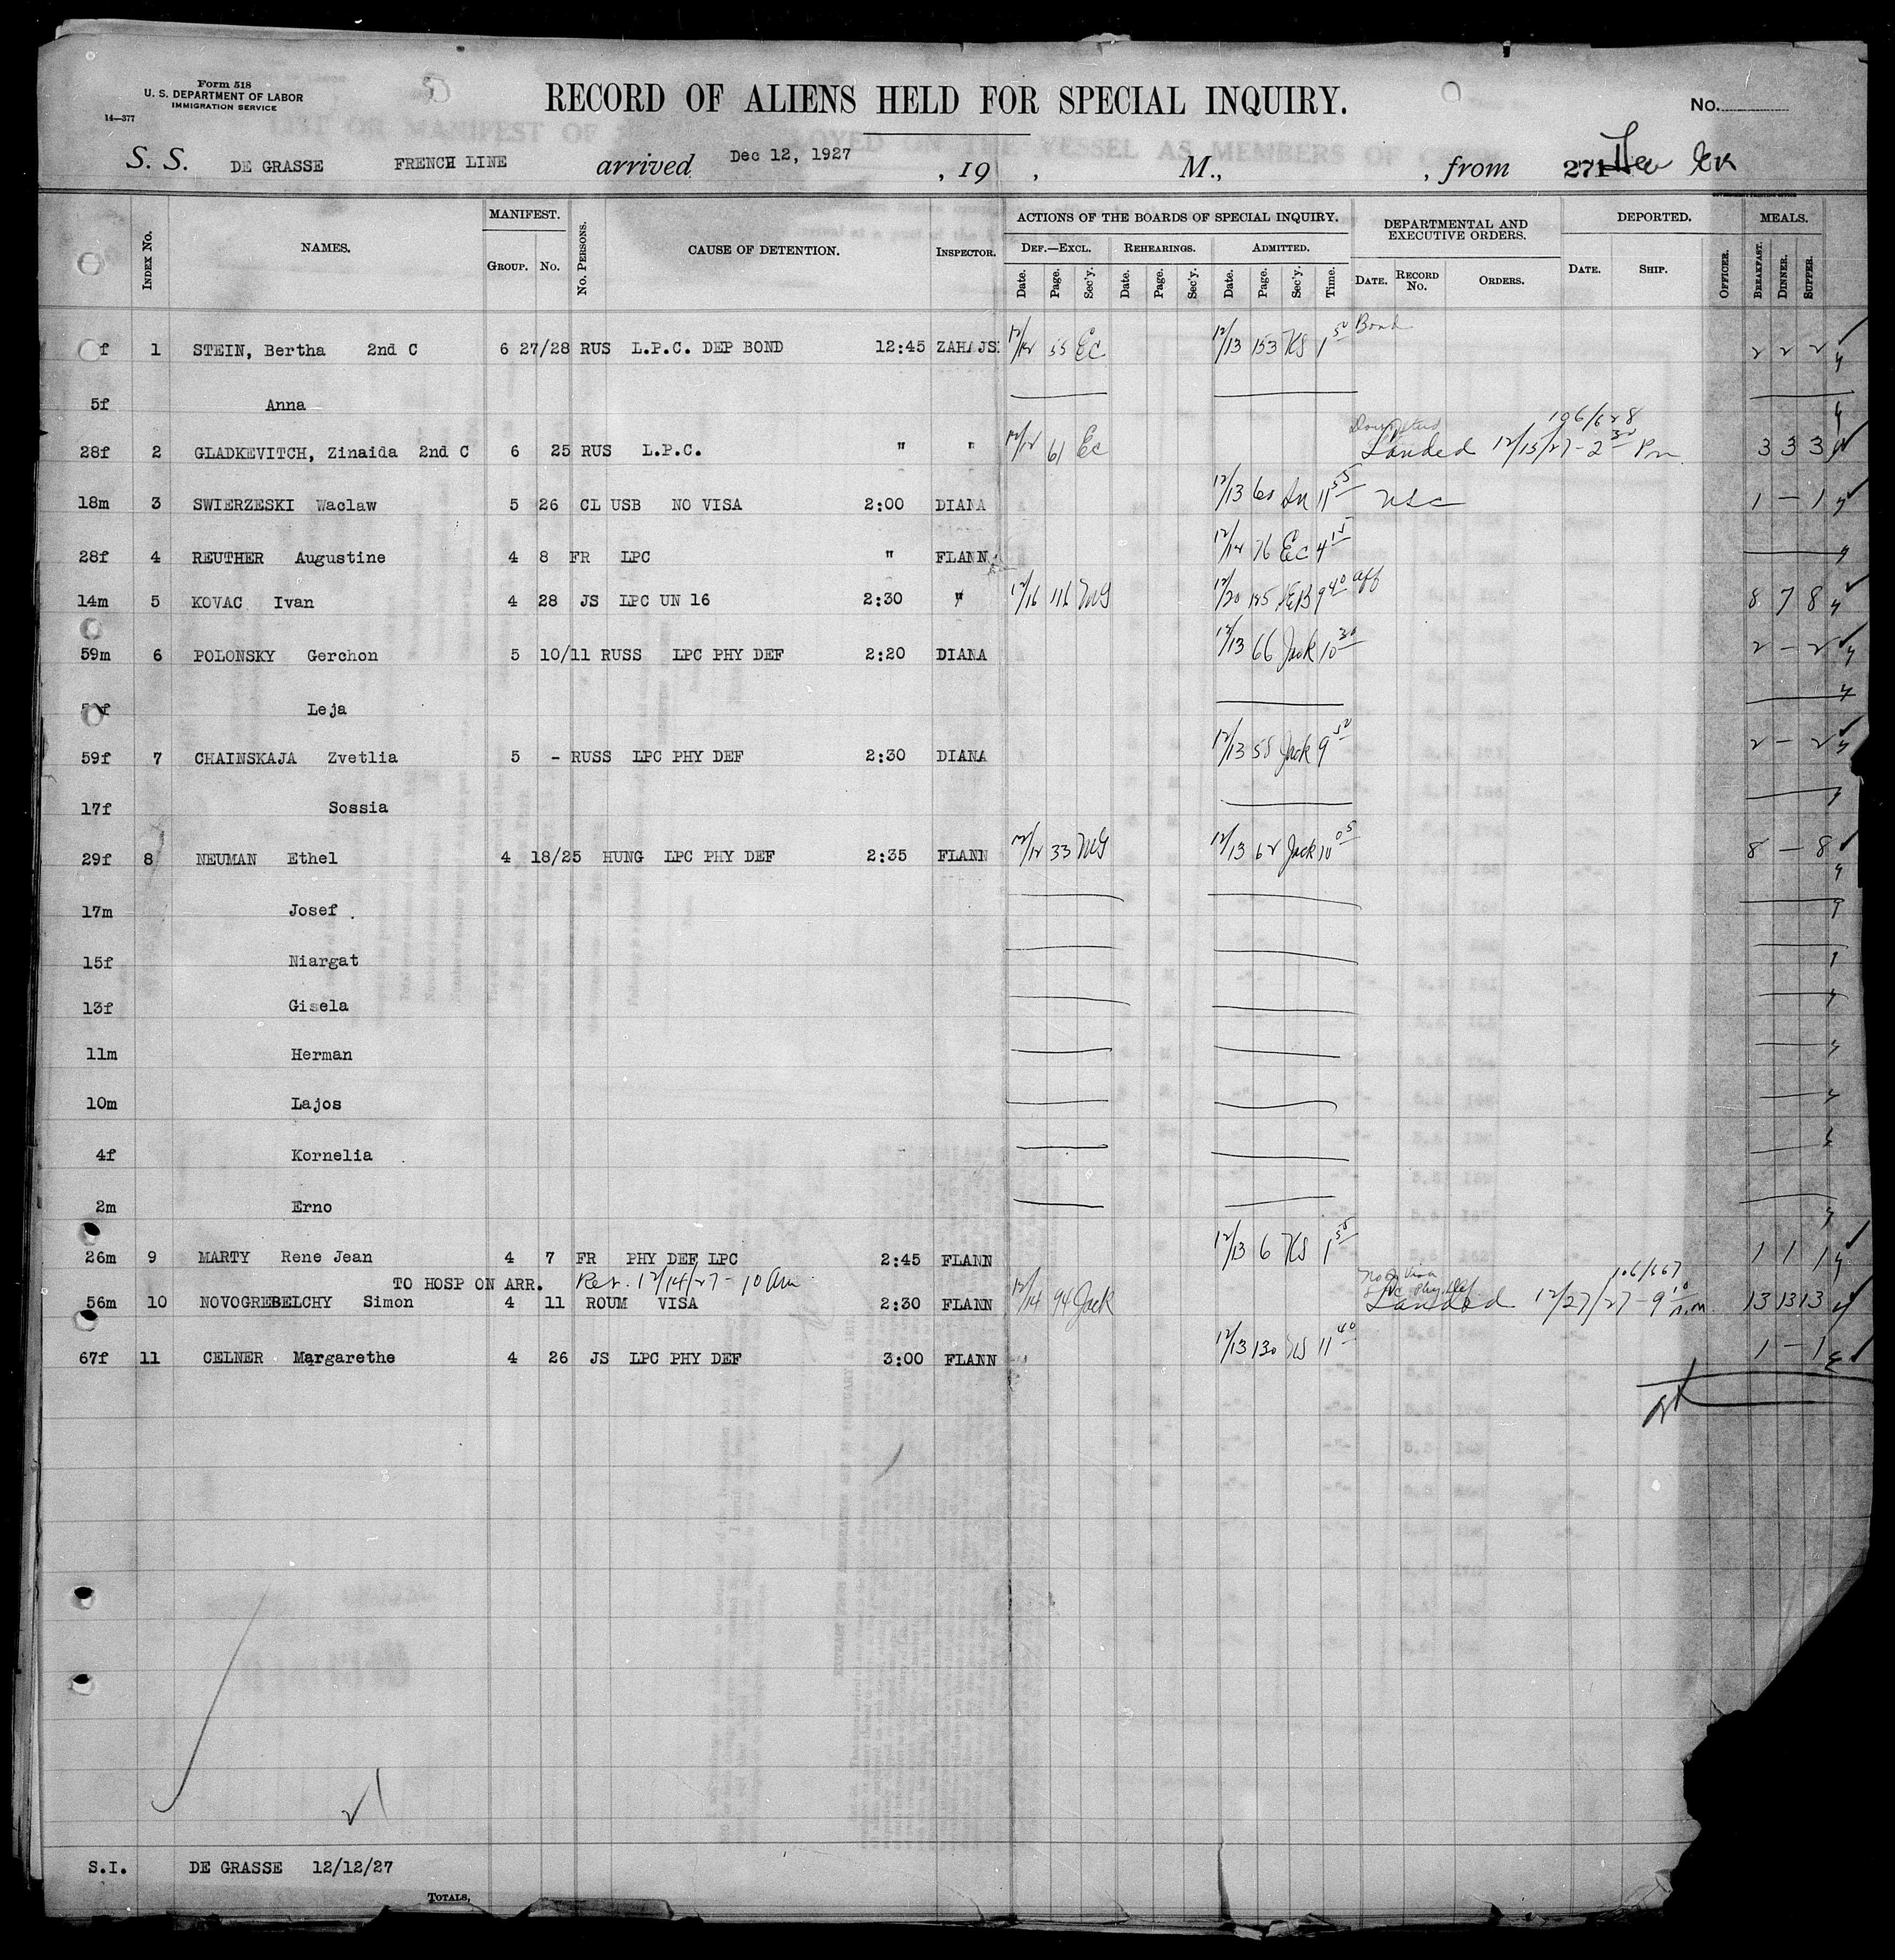 Form 518
U. S. DEPARTMENT OF LABOR
IMMIGRATION SERVICE
14—377
RECORD OF ALIENS HELD FOR SPECIAL INQUIRY.
No.
S. S. DE GRASSE FRENCH LINE arrived Dec 12, 1927 , 19 , M., , from 271
INDEX NO. NAMES. MANIFEST. GROUP. NO. NO. PERSONS. CAUSE OF DETENTION. INSPECTOR. ACTIONS OF THE BOARDS OF SPECIAL INQUIRY. DEF.—EXCL. Date. Page. Sec'y. REHEARINGS. Date. Page. Sec'y. ADMITTED. Date. Page. Sec'y. Time. DEPARTMENTAL AND EXECUTIVE ORDERS. DATE. RECORD NO. ORDERS. DEPORTED. DATE. SHIP. OFFICER. MEALS. BREAKFAST. DINNER. SUPPER.
f 1 STEIN, Bertha 2nd C 6 27/28 RUS L.P.C. DEP BOND 12:45 12/12 55 Ec 12/13 153 KS 1 50 Bond 2 2 2
5f Anna
28f 2 GLADKEVITCH, Zinaida 2nd C 6 25 RUS L.P.C. " " 12/12 61 Ec Landed 12/15/27 - 2 30 Pm 106/628 3 3 3
18m 3 SWIERZESKI Waclaw 5 26 CL USB NO VISA 2:00 DIANA 12/13 11 55 USC 1 — 1
28f 4 REUTHER Augustine 4 8 FR LPC " FLANN 12/14 76 Ec 4 15
14m 5 KOVAC Ivan 4 28 JS LPC UN 16 2:30 " 12/16 116 MG 12/20 9 40 aff 8 7 8
59m 6 POLONSKY Gerchon 5 10/11 RUSS LPC PHY DEF 2:20 DIANA 12/13 66 Jack 10 30 2 — 2
f Leja
59f 7 CHAINSKAJA Zvetlia 5 - RUSS LPC PHY DEF 2:30 DIANA 12/13 Jack 9 50 2 — 2
17f Sossia
29f 8 NEUMAN Ethel 4 18/25 HUNG LPC PHY DEF 2:35 FLANN 12/12 33 MG 12/13 62 Jack 10 05 8 — 8
17m Josef
15f Niargat
13f Gisela
11m Herman
10m Lajos
4f Kornelia
2m Erno
26m 9 MARTY Rene Jean 4 7 FR PHY DEF LPC 2:45 FLANN 12/13 6 KS 1 55 1 1 1
TO HOSP ON ARR. Ret. 12/14/27 - 10 am
56m 10 NOVOGREBELCHY Simon 4 11 ROUM VISA 2:30 FLANN 12/14 94 Jack Landed 12/27/27 - 9 10 106/667 13 13 13
67f 11 CELNER Margarethe 4 26 JS LPC PHY DEF 3:00 FLANN 12/13 130 KS 11 40 1 — 1
S.I. DE GRASSE 12/12/27
TOTALS,